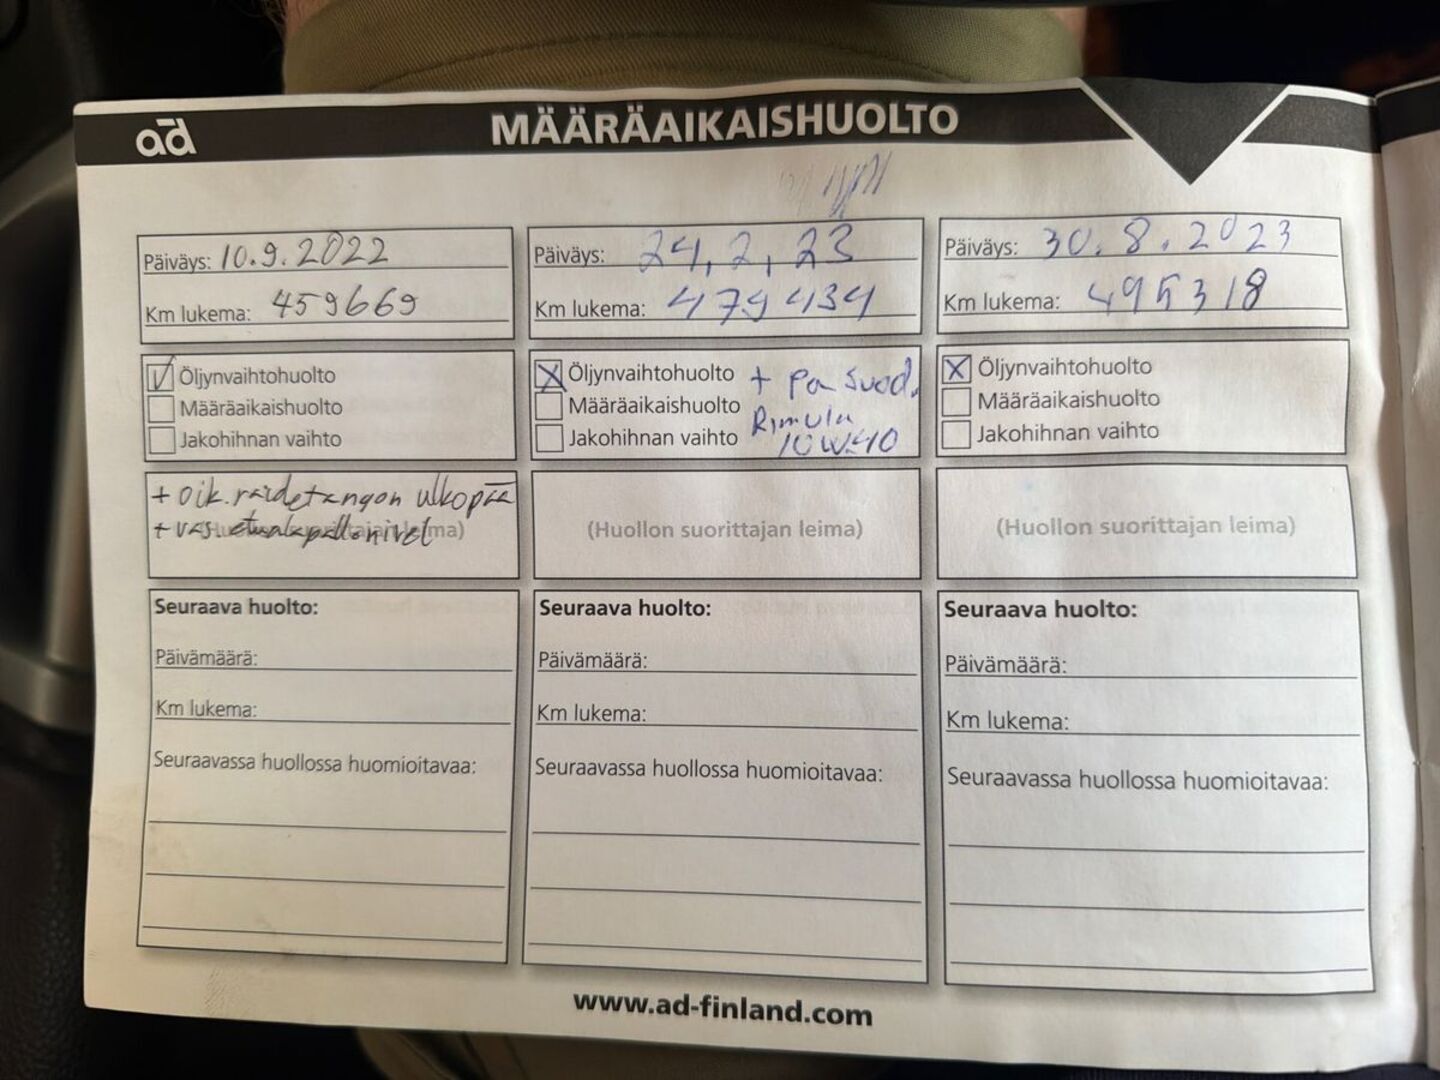 ad
MÄÄRÄAIKAISHUOLTO
Päiväys: 10.9.2022
Km lukema: 459669
Öljynvaihtohuolto
Määräaikaishuolto
Jakohihnan vaihto
+ oik. raidetangon ulkopää
+ vas. etualapallonivel
(Huollon suorittajan leima)
Seuraava huolto:
Päivämäärä:
Km lukema:
Seuraavassa huollossa huomioitavaa:
Päiväys: 24,2,23
Km lukema: 479434
Öljynvaihtohuolto + pa suod.
Määräaikaishuolto Rimula
Jakohihnan vaihto 10W-40
(Huollon suorittajan leima)
Seuraava huolto:
Päivämäärä:
Km lukema:
Seuraavassa huollossa huomioitavaa:
Päiväys: 30.8.2023
Km lukema: 495318
Öljynvaihtohuolto
Määräaikaishuolto
Jakohihnan vaihto
(Huollon suorittajan leima)
Seuraava huolto:
Päivämäärä:
Km lukema:
Seuraavassa huollossa huomioitavaa:
www.ad-finland.com